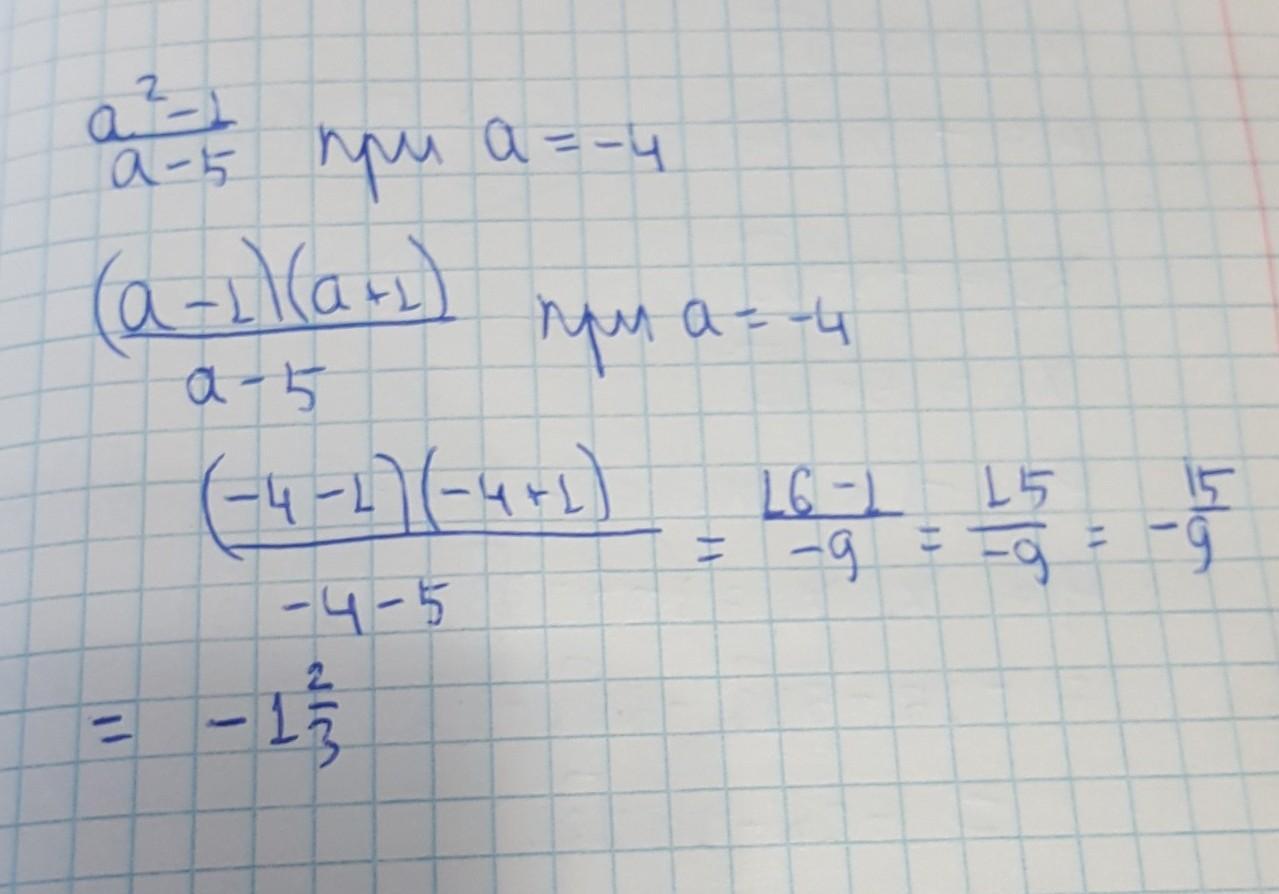 a² - 1
a - 5 при a = -4
(a - 1)(a + 1)
a - 5 при a = -4
(-4 - 1)(-4 + 1)
-4 - 5 = 16 - 1 / -9 = 15 / -9 = - 15 / 9
= - 1 2/3